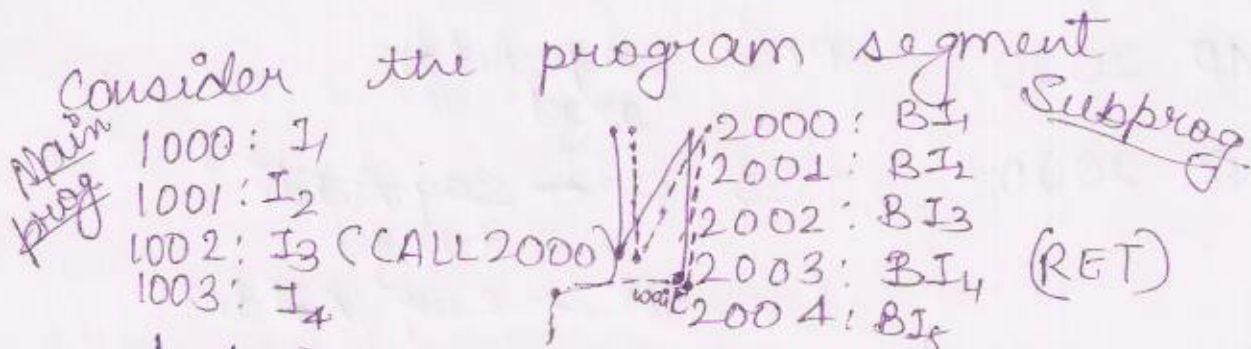 Consider the program segment
Main prog
1000: I1
1001: I2
1002: I3 (CALL2000)
1003: I4
wait
Subprog.
2000: BI1
2001: BI2
2002: BI3
2003: BI4 (RET)
2004: BI5